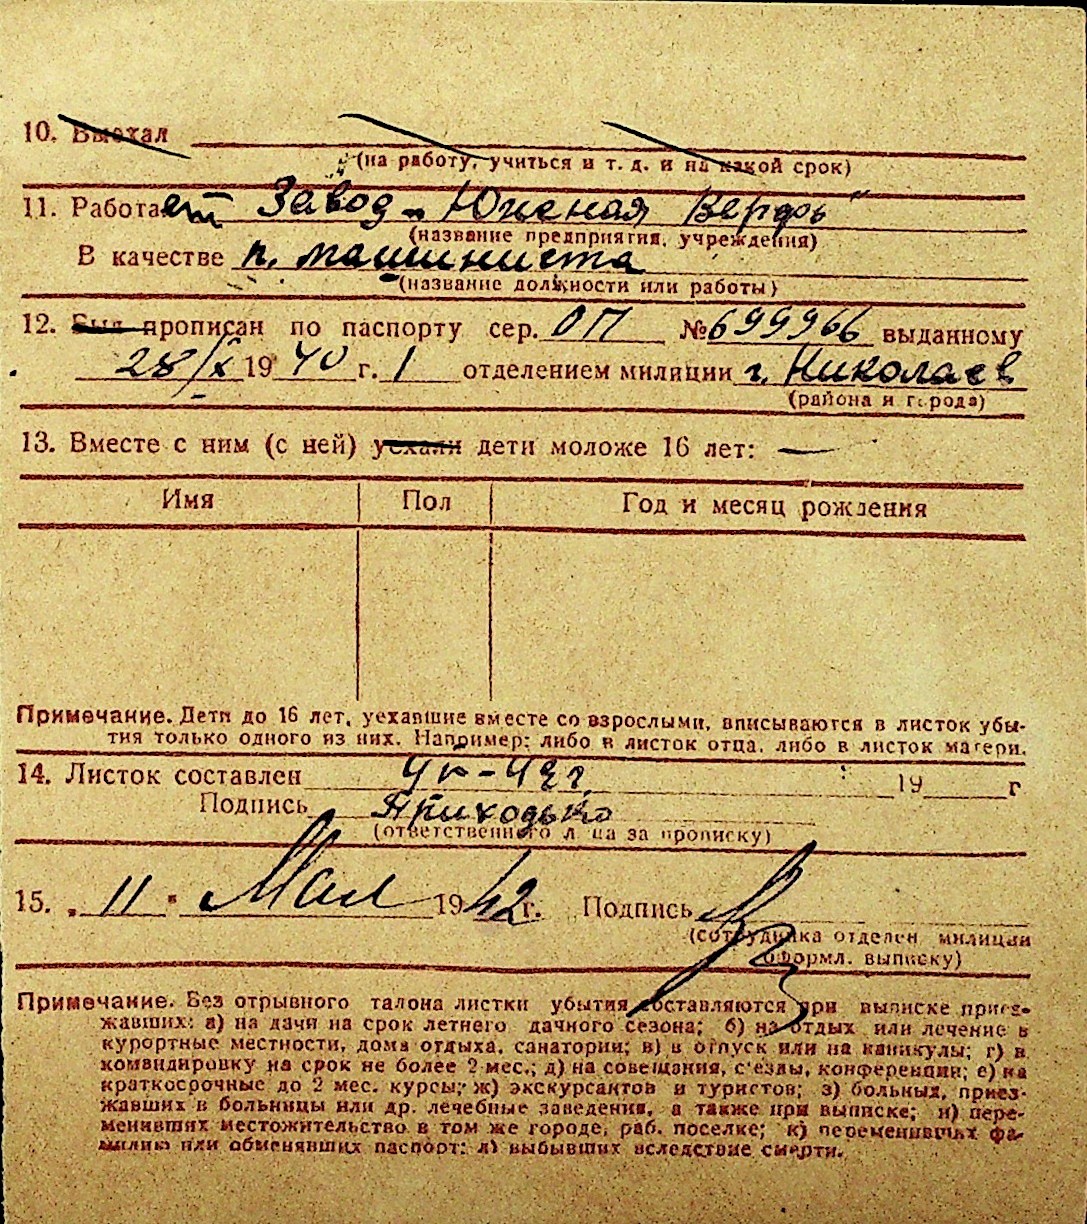 10. Выехал
(на работу, учиться и т. д. и на какой срок)
11. Работает Завод „Южная Верфь"
(название предприятия, учреждения)
В качестве п. машиниста
(название должности или работы)
12. Был прописан по паспорту сер. ОП № 699966 выданному
28/X 1940 г. 1 отделением милиции г. Николаев
(района и города)
13. Вместе с ним (с ней) уехали дети моложе 16 лет: —
Имя Пол Год и месяц рождения
Примечание. Дети до 16 лет, уехавшие вместе со взрослыми, вписываются в листок убы-
тия только одного из них. Например: либо в листок отца, либо в листок матери.
14. Листок составлен 19 г
Подпись Приходько
(ответственного лица за прописку)
15. „11" Мая 1942 г. Подпись
(сотрудника отделен. милиции
оформл. выписку)
Примечание. Без отрывного талона листки убытия составляются при выписке приез-
жавших: а) на дачи на срок летнего дачного сезона; б) на отдых или лечение в
курортные местности, дома отдыха, санатории; в) в отпуск или на каникулы; г) в
командировку на срок не более 2 мес.; д) на совещания, с'езды, конференции; е) на
краткосрочные до 2 мес. курсы; ж) экскурсантов и туристов; з) больных, приез-
жавших в больницы или др. лечебные заведения, а также при выписке; и) пере-
менивших местожительство в том же городе, раб. поселке; к) переменивших фа-
милию или обменявших паспорт; л) выбывших вследствие смерти.